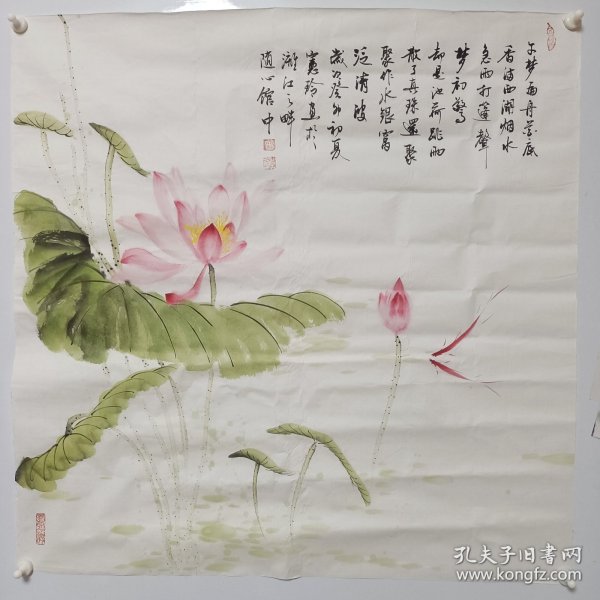 午梦扁舟花底
香满西湖烟水
急雨打蓬聲
梦初驚
却是池荷跳雨
散了真珠還聚
聚作水银窩
泛清波
岁次癸卯初夏
画於
漓江之畔
随心馆中
孔夫子旧书网
www.kongfz.com